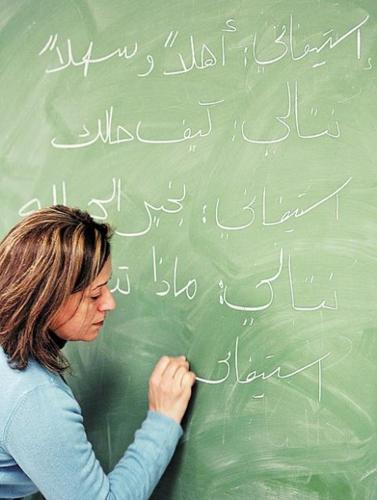 إستيفاني: أهلاً وسهلاً
نتالي: كيف حالك
استيفاني: بخير الحمد لله
نتالي: ماذا
استيفاني